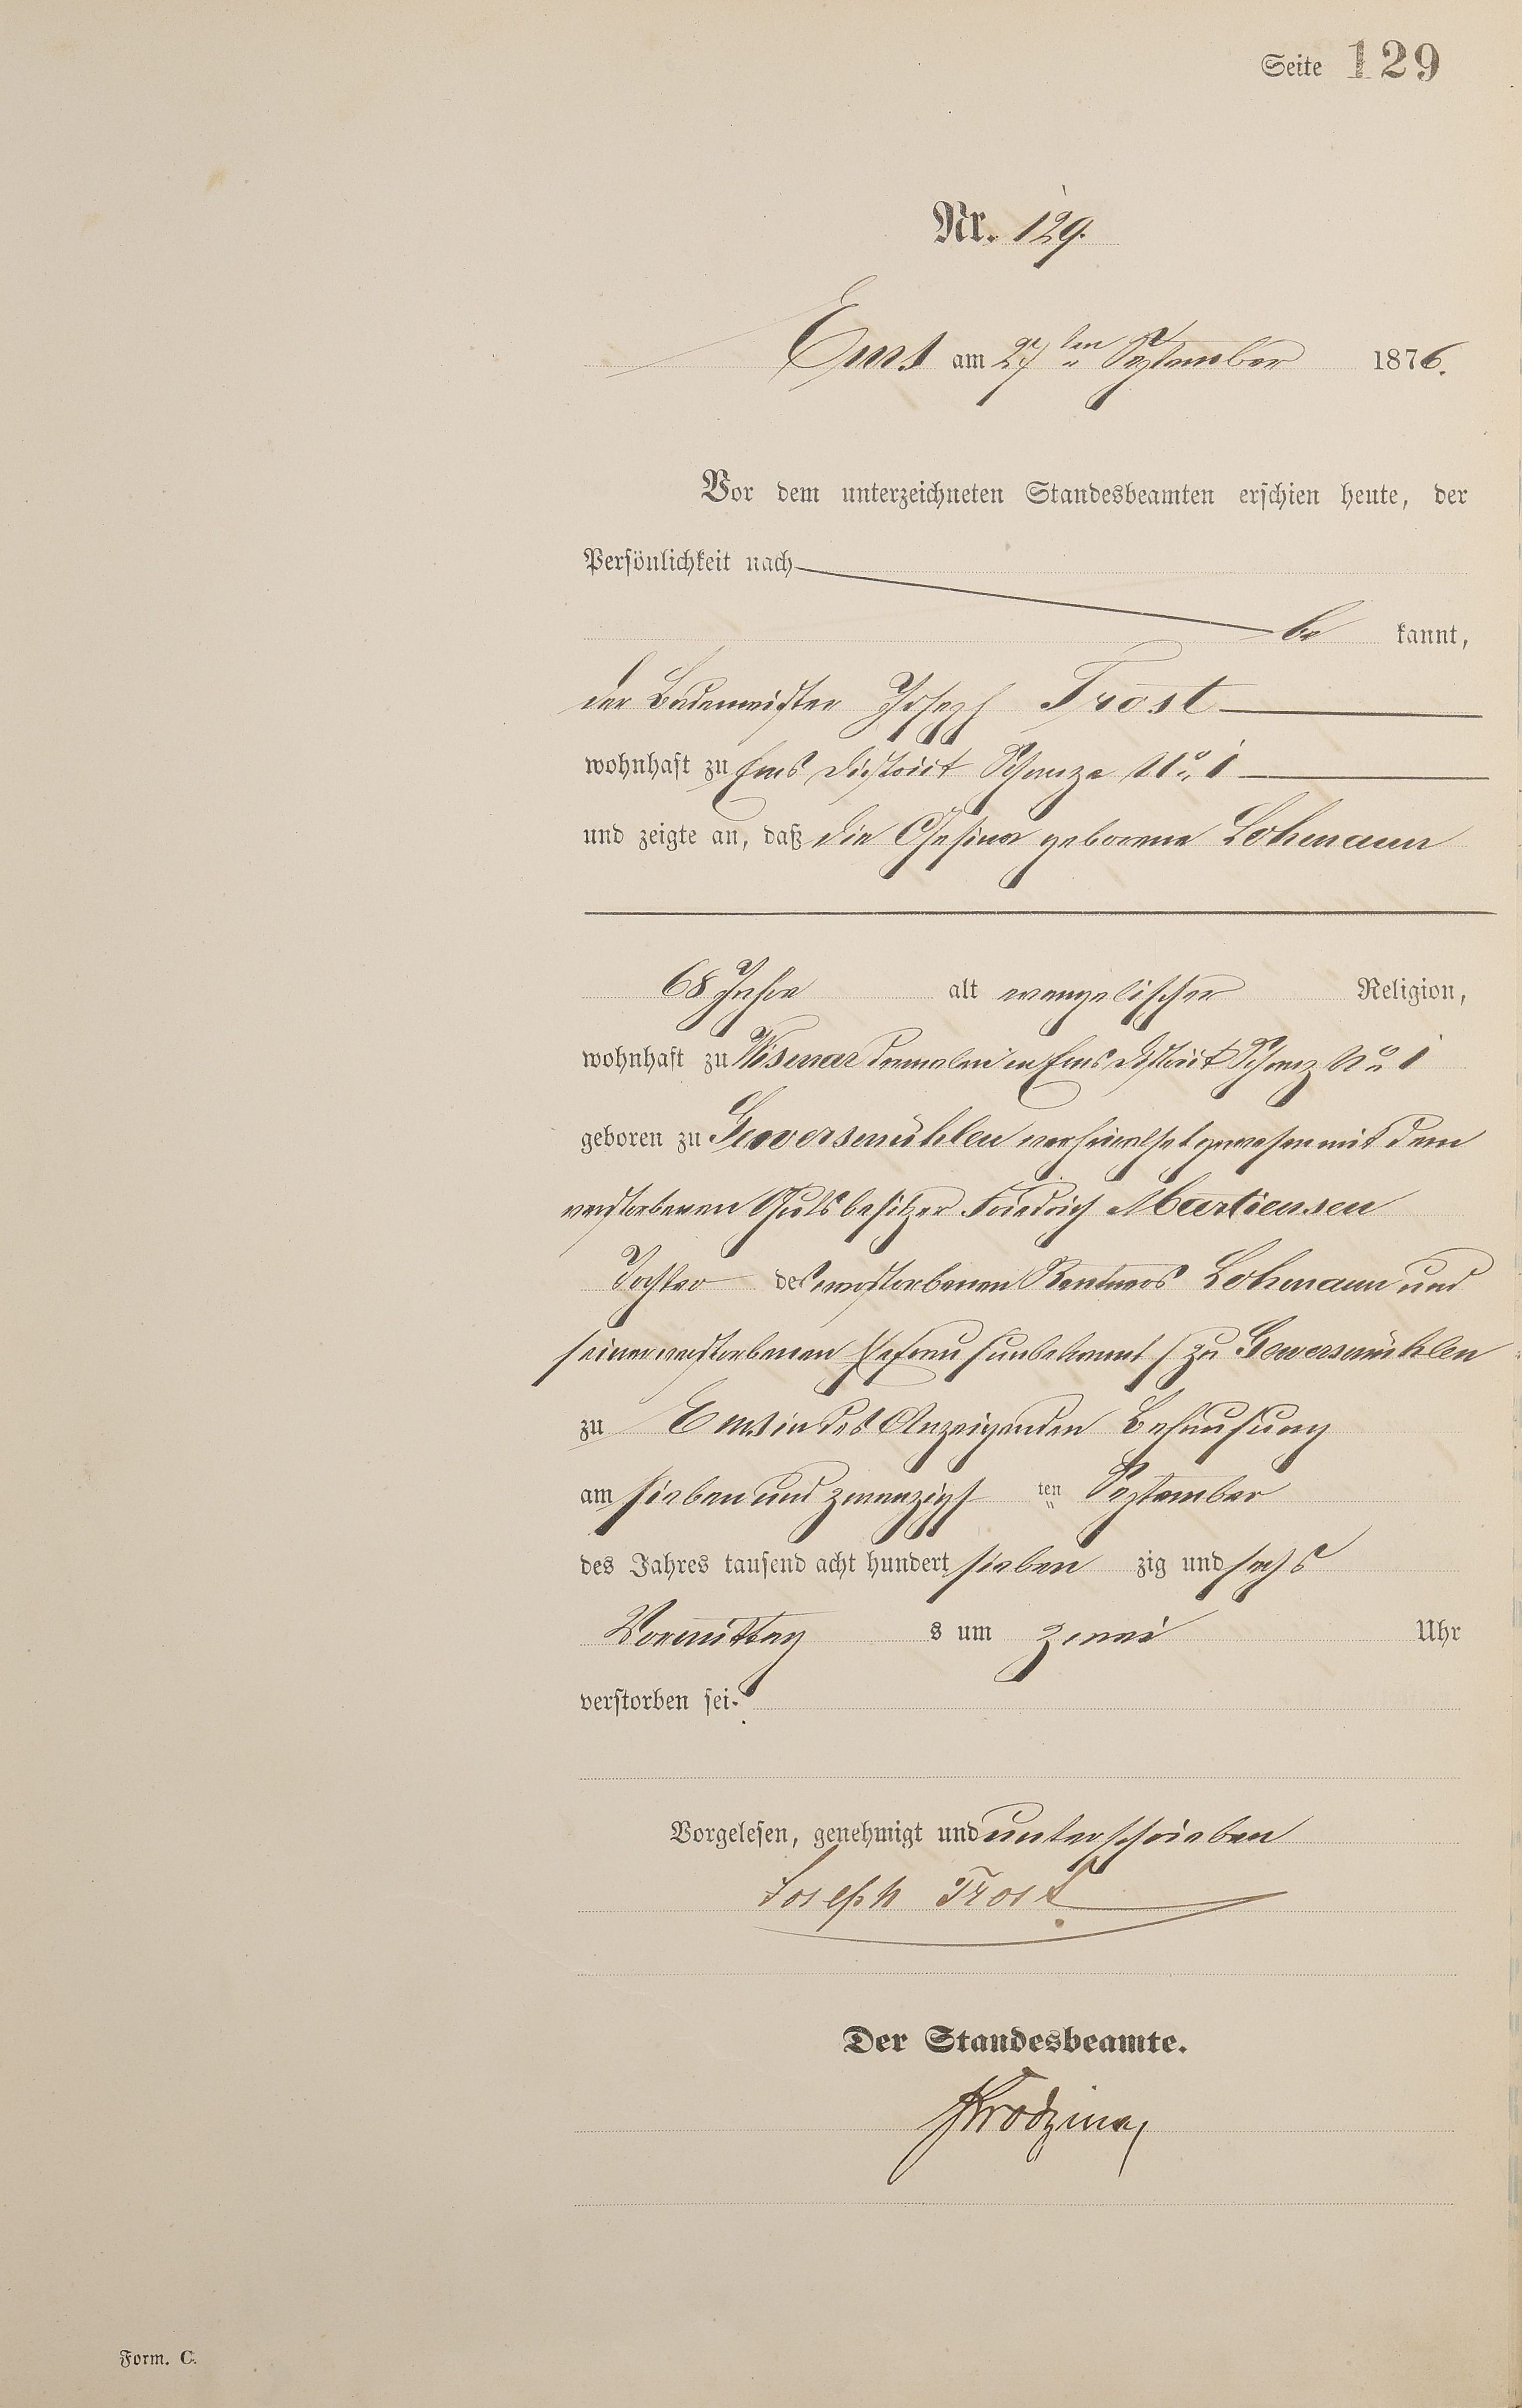 Seite 129
Nr. 129.
Ems am 27 ten September 1876.
Vor dem unterzeichneten Standesbeamten erschien heute, der
Persönlichkeit nach
be kannt,
der Bademeister Joseph Trost
wohnhaft zu Ems District Schanze No 1
und zeigte an, daß die Gesina geborene Lohmann
68 Jahre alt evangelischer Religion,
wohnhaft zu Wismar dermalen in Ems District Schanz No 1
geboren zu Greversmühlen verheirathet gewesen mit dem
verstorbenen Gutsbesitzer Friedrich Martiensen
Tochter des verstorbenen Rentners Lohmann und
seiner verstorbenen Ehefrau (unbekannt) zu Gewersmühlen
zu Ems in des Anzeigenden Behausung
am sieben und zwanzigs ten September
des Jahres tausend acht hundert sieben zig und sechs
Vormittag s um zwei Uhr
verstorben sei.
Vorgelesen, genehmigt und unterschrieben
Joseph Trost
Der Standesbeamte.
Form. C.